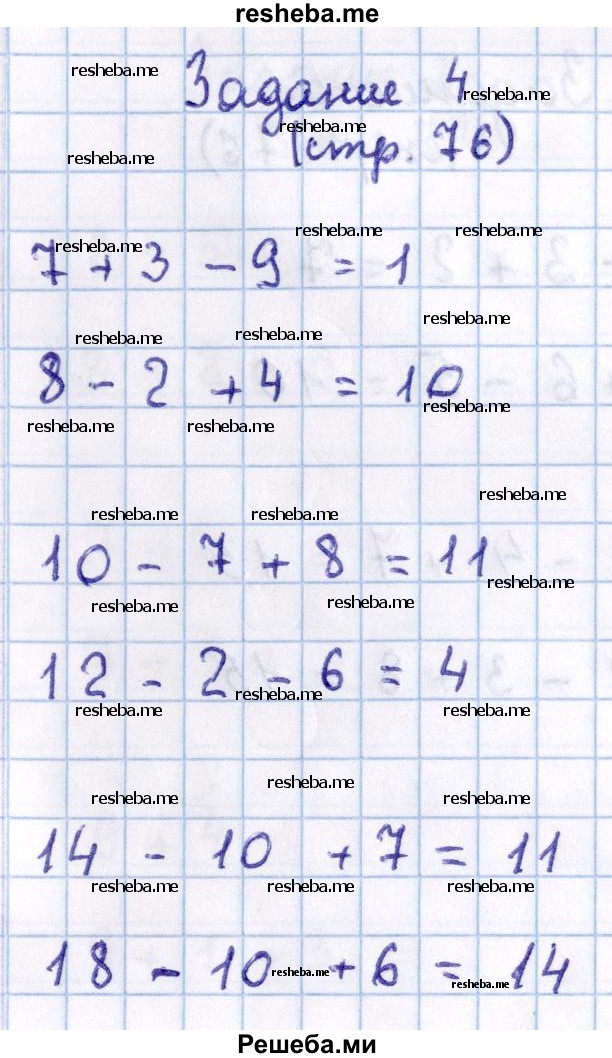 resheba.me
resheba.me
Задание 4
resheba.me
resheba.me
resheba.me
(стр. 76)
resheba.me resheba.me
resheba.me
7 + 3 - 9 = 1
resheba.me
resheba.me resheba.me
8 - 2 + 4 = 10
resheba.me
resheba.me resheba.me
resheba.me
resheba.me resheba.me
10 - 7 + 8 = 11
resheba.me
resheba.me resheba.me
12 - 2 - 6 = 4
resheba.me
resheba.me resheba.me
resheba.me
resheba.me resheba.me
14 - 10 + 7 = 11
resheba.me resheba.me resheba.me
18 - 10 + 6 = 14
resheba.me resheba.me
Решеба.ми